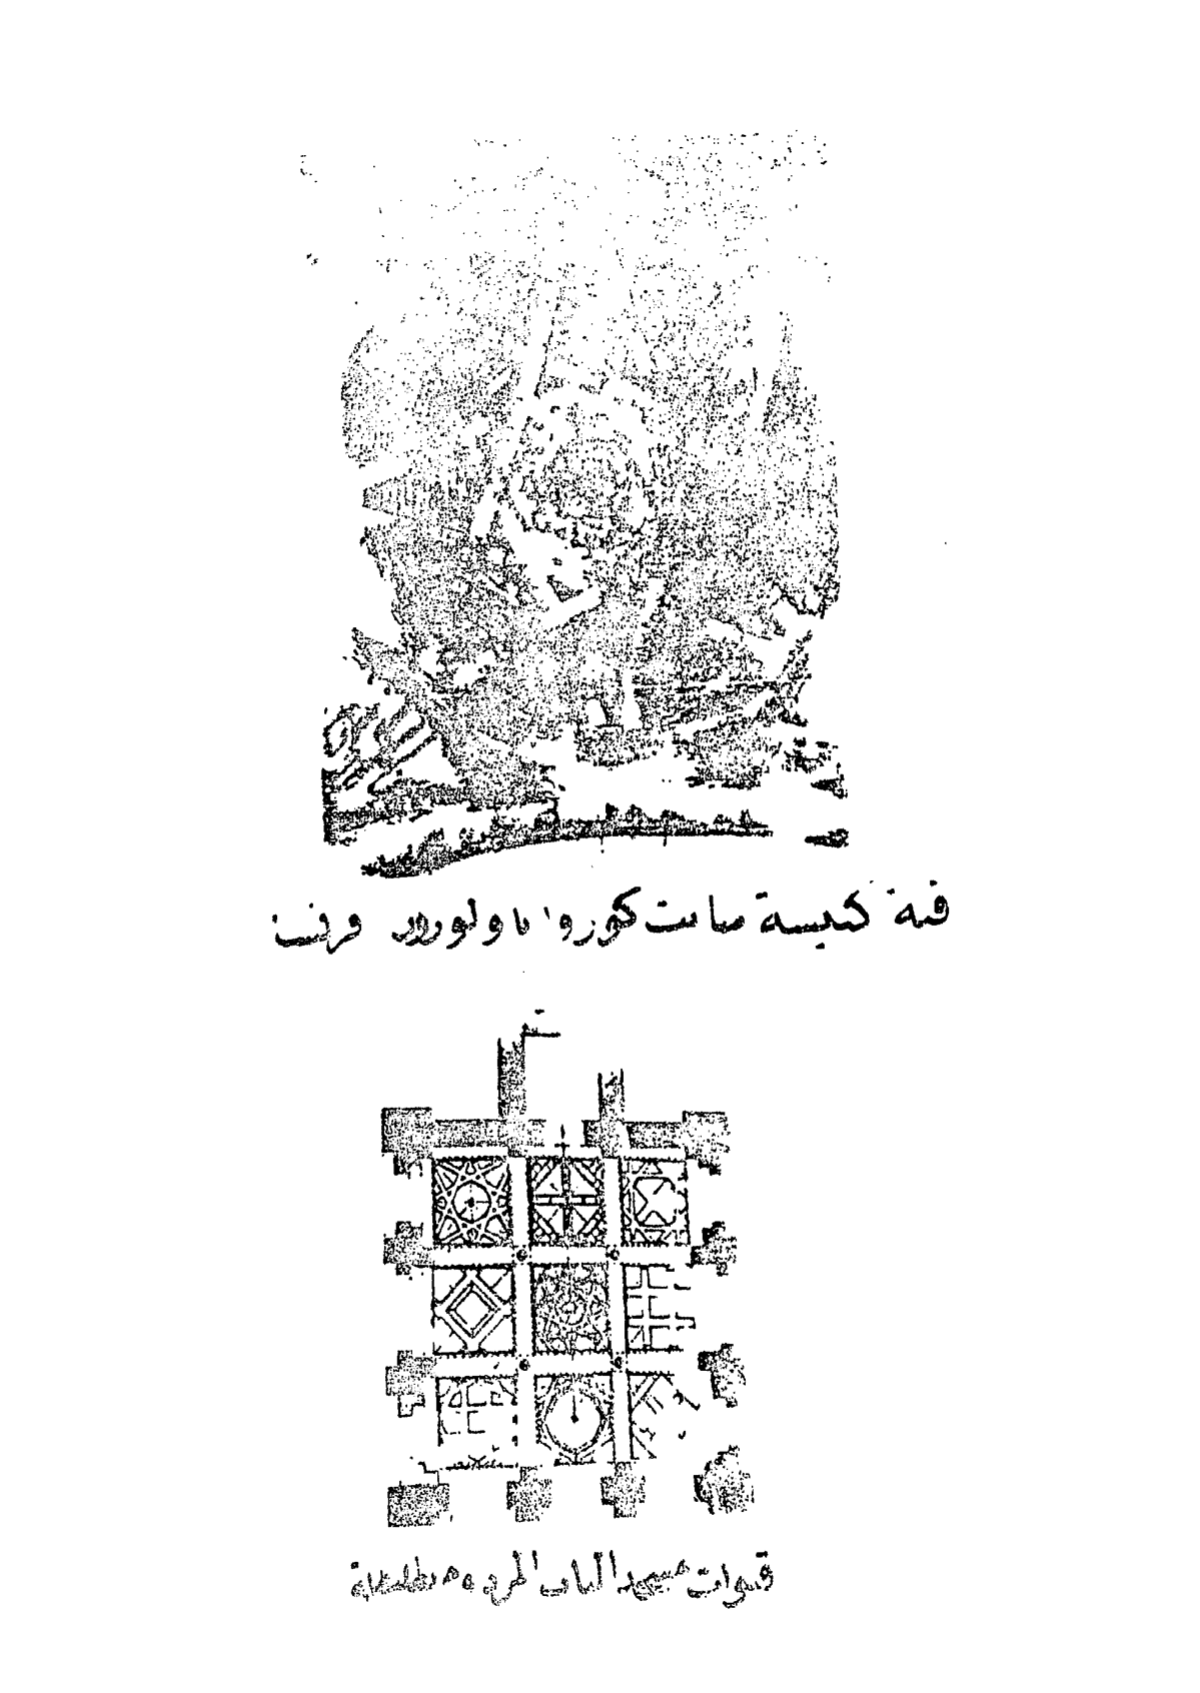 قبة كنيسة سانت كوروا باولورون فرنسا
قبوات مسجد الباب المردوم بطليطلة